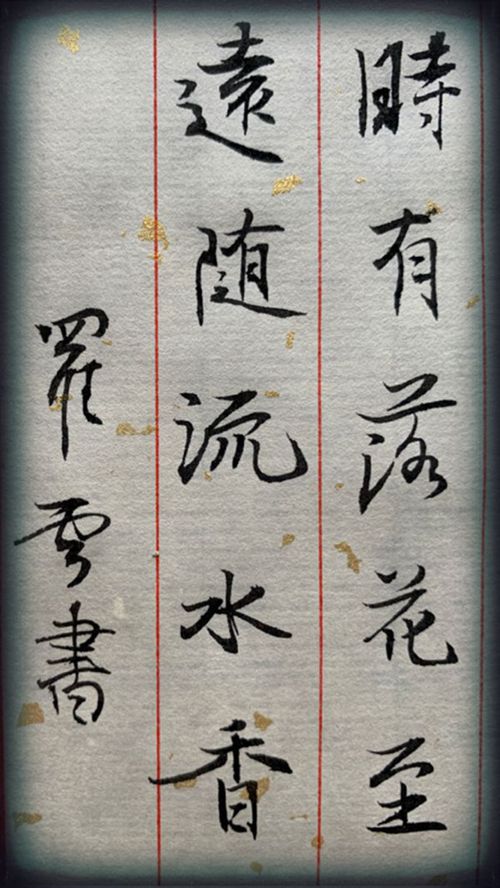 時有落花至
遠随流水香
羅雲書